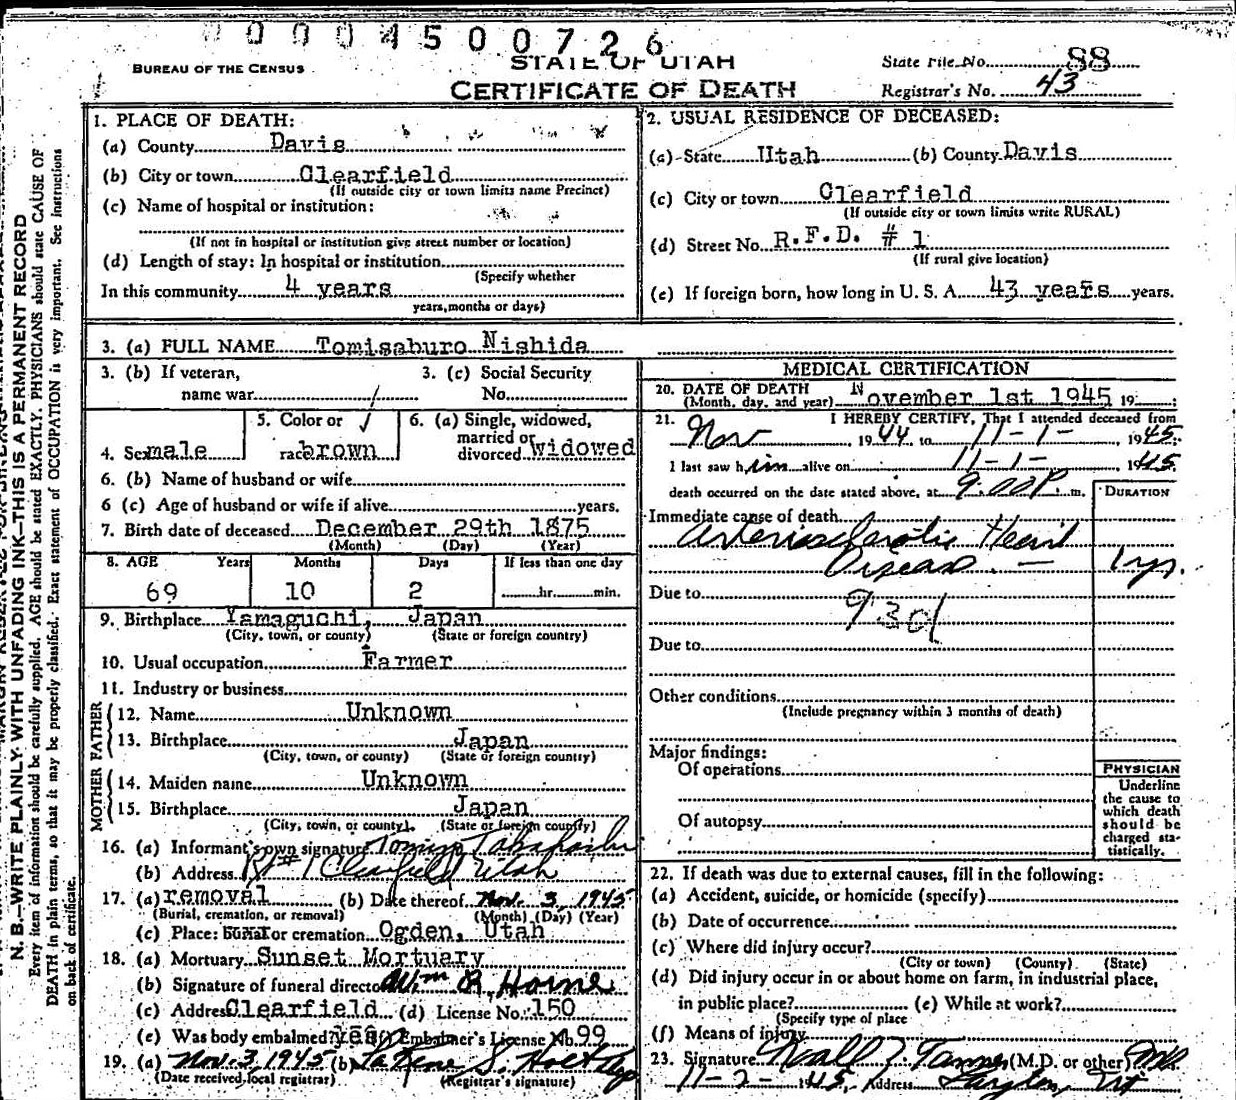 0004500726
STATE OF UTAH
BUREAU OF THE CENSUS
State File No. 88
CERTIFICATE OF DEATH
Registrar's No. 43
N. B.—WRITE PLAINLY WITH UNFADING INK—THIS IS A PERMANENT RECORD
Every item of information should be carefully supplied. AGE should be stated EXACTLY. PHYSICIANS should state CAUSE OF
DEATH in plain terms, so that it may be properly classified. Exact statement of OCCUPATION is very important. See instructions
on back of certificate.
1. PLACE OF DEATH:
(a) County Davis
(b) City or town Clearfield
(If outside city or town limits name Precinct)
(c) Name of hospital or institution:
(If not in hospital or institution give street number or location)
(d) Length of stay: In hospital or institution
(Specify whether
In this community 4 years
years, months or days)
2. USUAL RESIDENCE OF DECEASED:
(a) State Utah (b) County Davis
(c) City or town Clearfield
(If outside city or town limits write RURAL)
(d) Street No. R.F.D. # 1
(If rural give location)
(e) If foreign born, how long in U. S. A. 43 years years.
3. (a) FULL NAME Tomisaburo Nishida
3. (b) If veteran, 3. (c) Social Security
name war No.
4. Sex male
5. Color or
race brown
6. (a) Single, widowed,
married or
divorced widowed
6. (b) Name of husband or wife
6 (c) Age of husband or wife if alive years.
7. Birth date of deceased December 29th 1875
(Month) (Day) (Year)
8. AGE Years Months Days If less than one day
69 10 2 hr. min.
9. Birthplace Yamaguchi, Japan
(City, town, or county) (State or foreign country)
10. Usual occupation Farmer
11. Industry or business
FATHER
12. Name Unknown
13. Birthplace Japan
(City, town, or county) (State or foreign country)
MOTHER
14. Maiden name Unknown
15. Birthplace Japan
(City, town, or county) (State or foreign country)
16. (a) Informant's own signature Tomiso Takahashi
(b) Address Rt # 1 Clearfield Utah
17. (a) removal (b) Date thereof Nov. 3, 1945
(Burial, cremation, or removal) (Month) (Day) (Year)
(c) Place: burial or cremation Ogden, Utah
18. (a) Mortuary Sunset Mortuary
(b) Signature of funeral director Wm R. Horne
(c) Address Clearfield (d) License No. 150
(e) Was body embalmed? yes Embalmer's License No. 99
19. (a) Nov. 3, 1945 (b) LaRene S. Holt
(Date received local registrar) (Registrar's signature)
MEDICAL CERTIFICATION
20. DATE OF DEATH
(Month, day, and year) November 1st 1945 19
21. I HEREBY CERTIFY, That I attended deceased from
Nov 1944 to 11-1- 1945
I last saw him alive on 11-1- 1945
death occurred on the date stated above, at 9:00 P. m. DURATION
Immediate cause of death
Arteriosclerotic Heart
Disease. — 1 yr.
Due to
93d1
Due to
Other conditions
(Include pregnancy within 3 months of death)
Major findings:
Of operations
Of autopsy
PHYSICIAN
Underline
the cause to
which death
should be
charged sta-
tistically.
22. If death was due to external causes, fill in the following:
(a) Accident, suicide, or homicide (specify)
(b) Date of occurrence
(c) Where did injury occur?
(City or town) (County) (State)
(d) Did injury occur in or about home on farm, in industrial place,
in public place? (e) While at work?
(Specify type of place
(f) Means of injury
23. Signature Noall Z. Tanner (M.D. or other) MD.
11-2- 1945, Address Layton, Ut